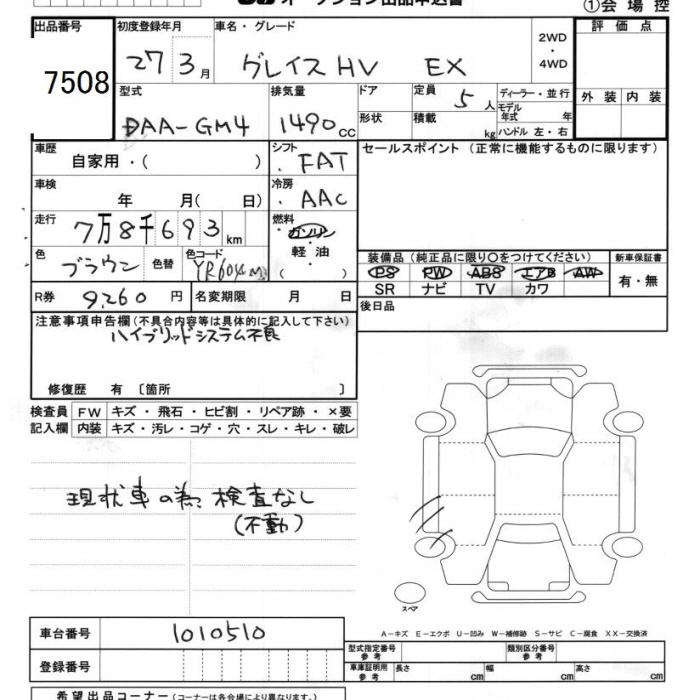 オークション出品申込書 ①会場控
出品番号 初度登録年月 車名・グレード 評価点
7508 27 3月 グレイスHV EX 2WD・4WD
型式 排気量 ドア 定員 5人 ディーラー・並行 外装 内装
DAA-GM4 1490cc 形状 積載 kg モデル年式 年
ハンドル 左・右
車歴 自家用・( ) シフト FAT セールスポイント (正常に機能するものに限ります)
車検 年 月( 日) 冷房 AAC
走行 7万8千693km 燃料 ガソリン
軽油
( )
色 ブラウン 色替 色コード 装備品(純正品に限り○をつけてください) 新車保証書
PS PW ABS エアB AW 有・無
SR ナビ TV カワ
R券 9,260円 名変期限 月 日 後日品
注意事項申告欄(不具合内容等は具体的に記入して下さい)
ハイブリッドシステム不良
修復歴 有〔箇所 〕
検査員 FW キズ・飛石・ヒビ割・リペア跡・×要
記入欄 内装 キズ・汚レ・コゲ・穴・スレ・キレ・破レ
現状車の為、検査なし
(不動)
スペア
車台番号 1010510 A-キズ E-エクボ U-凹み W-補修跡 S-サビ C-腐食 XX-交換済
型式指定番号 参考 類別区分番号 参考
登録番号 車庫証明用 参考 長さ cm 幅 cm 高さ cm
希望出品コーナー(コーナーは各会場により異なります。)